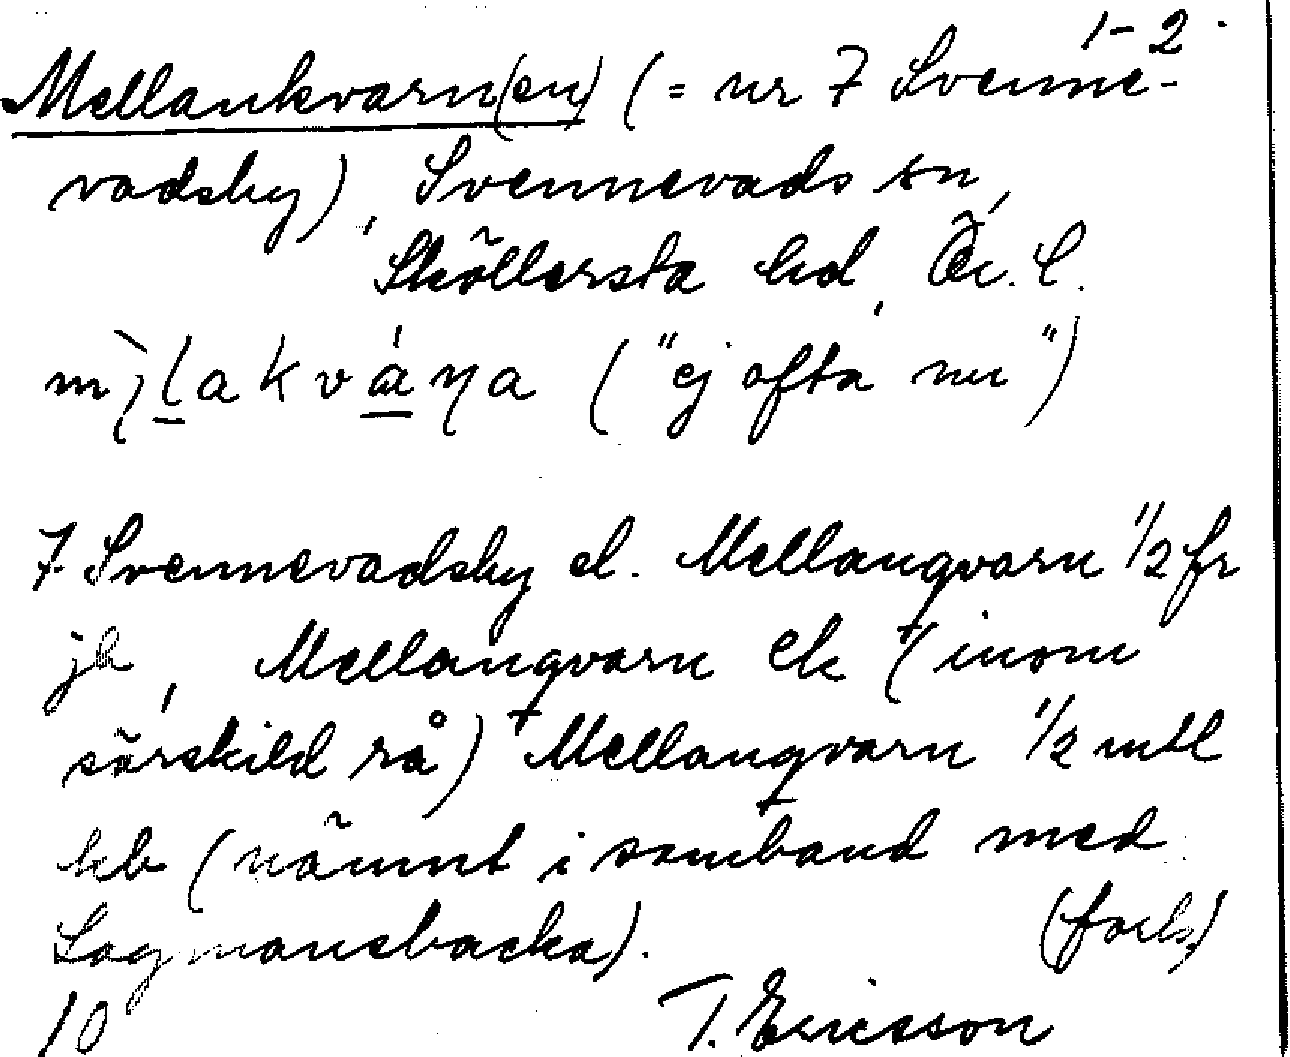 1-2.
Mellankvarn(en) (= nr 7 Svenne-
vadsby), Svennevads sn,
Sköllersta hd, Ör. l.
kvána ("ej ofta nu")
7 Svennevadsby el. Mellanqvarn 1/2 fr
jb, Mellanqvarn ek (inom
särskild rå) Mellanqvarn 1/2 mtl
hb (nämnt i samband med
Lagmansbacka). (forts)
10 T. Ericsson